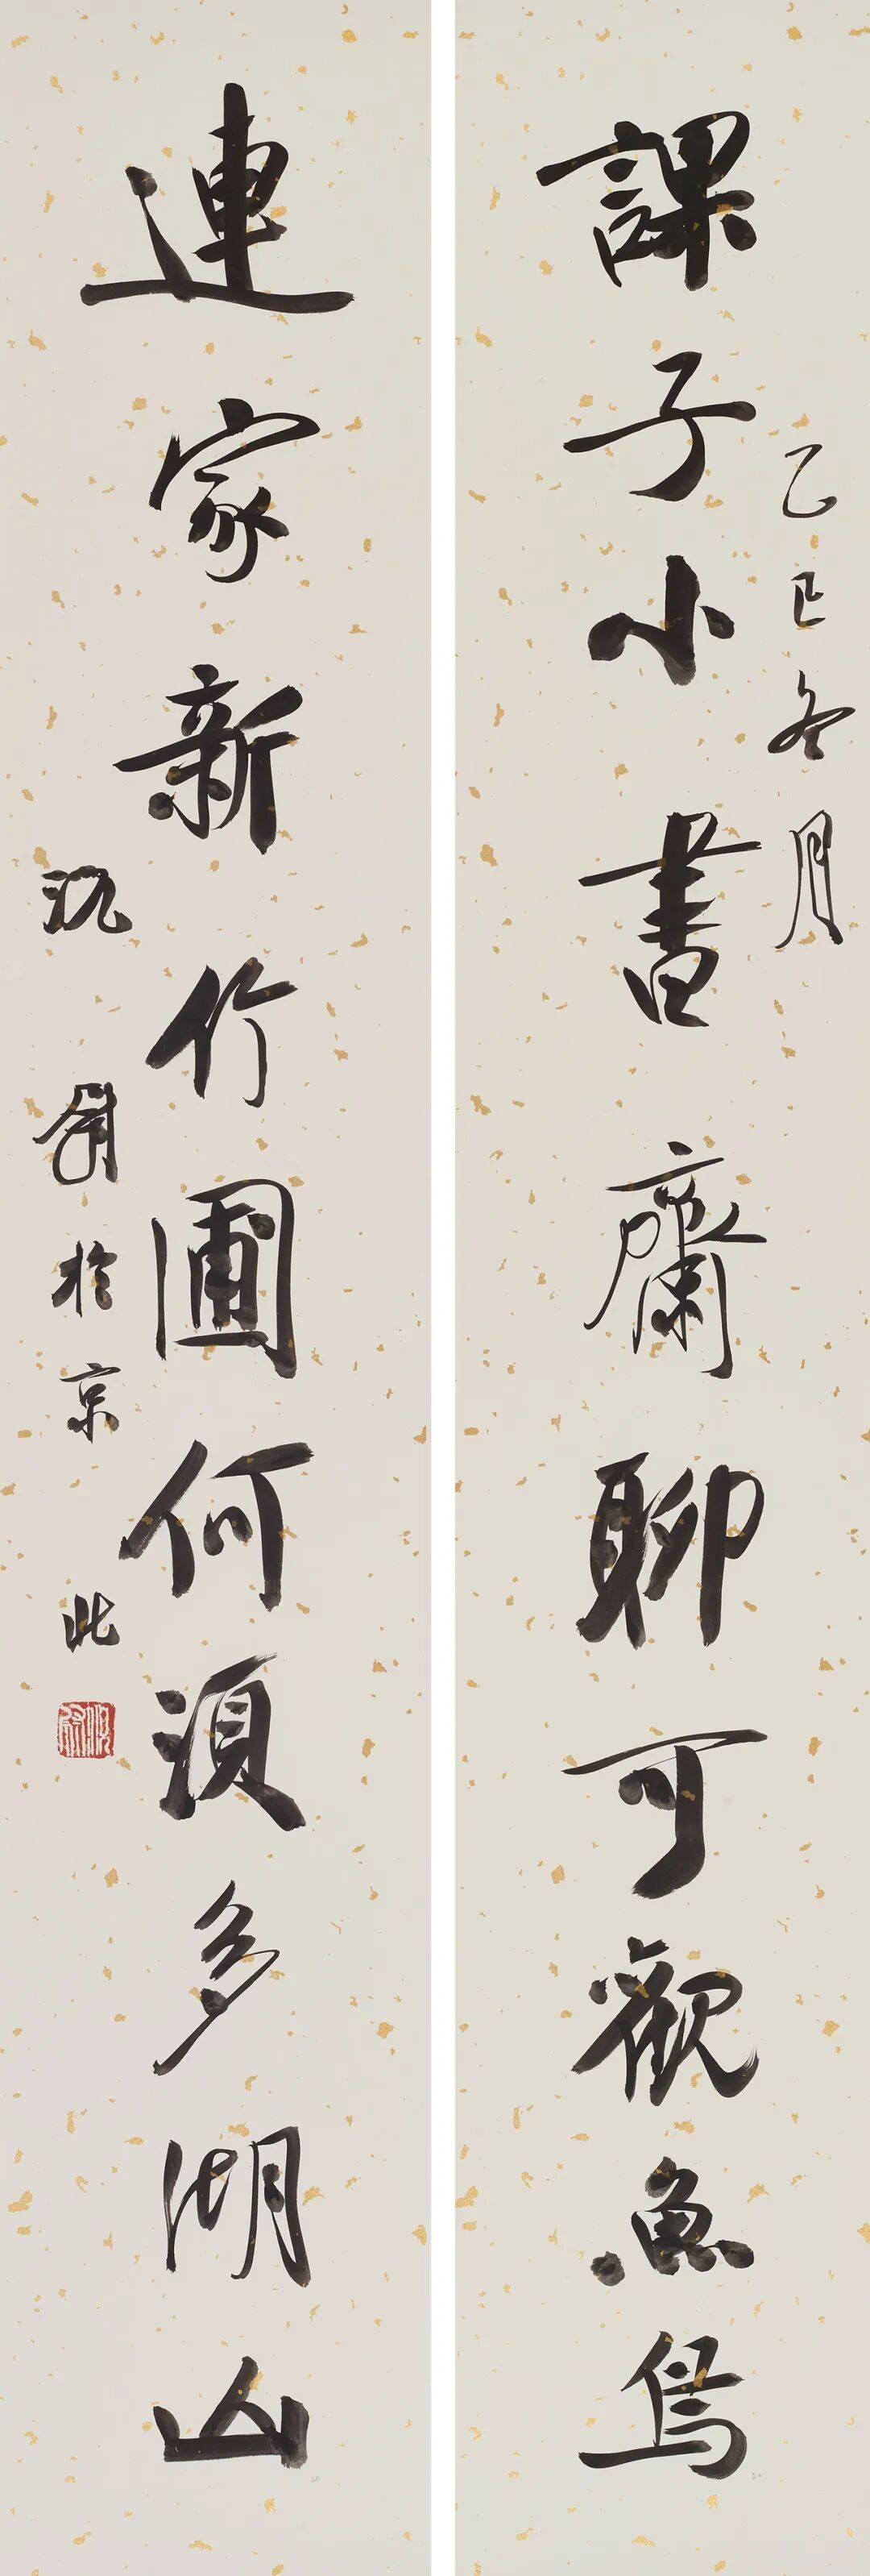 課子小書齋聊可觀魚鳥
乙巳冬月
連家新竹圃何須多湖山
於京北